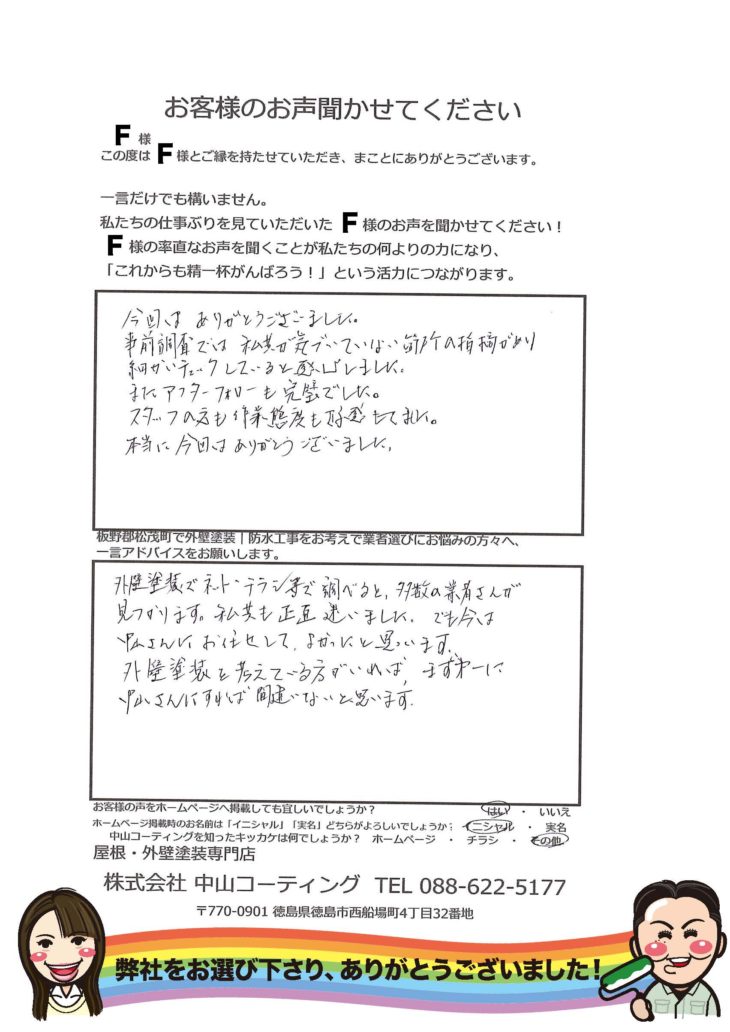 お客様のお声聞かせてください
F 様
この度は F 様とご縁を持たせていただき、まことにありがとうございます。
一言だけでも構いません。
私たちの仕事ぶりを見ていただいた F 様のお声を聞かせてください！
F 様の率直なお声を聞くことが私たちの何よりの力になり、
「これからも精一杯がんばろう！」という活力につながります。
今回は ありがとうございました。
事前調査では 私共が気づいていない箇所の指摘があり
細かいチェックしていると感心しました。
またアフターフォローも完璧でした。
スタッフの方も作業態度も好感もてました。
本当に今回はありがとうございました。
板野郡松茂町で外壁塗装｜防水工事をお考えで業者選びにお悩みの方々へ、
一言アドバイスをお願いします。
外壁塗装でネット・チラシ等で調べると、多数の業者さんが
見つかります。私共も正直迷いました。でも今は
中山さんにお任せして、よかったと思います。
外壁塗装を考えている方がいれば、まず第一に
中山さんにすれば間違いないと思います。
お客様の声をホームページへ掲載しても宜しいでしょうか？ はい ・ いいえ
ホームページ掲載時のお名前は「イニシャル」「実名」どちらがよろしいでしょうか？ イニシャル ・ 実名
中山コーティングを知ったキッカケは何でしょうか？ ホームページ ・ チラシ ・ その他
屋根・外壁塗装専門店
株式会社 中山コーティング TEL 088-622-5177
〒770-0901 徳島県徳島市西船場町4丁目32番地
弊社をお選び下さり、ありがとうございました！